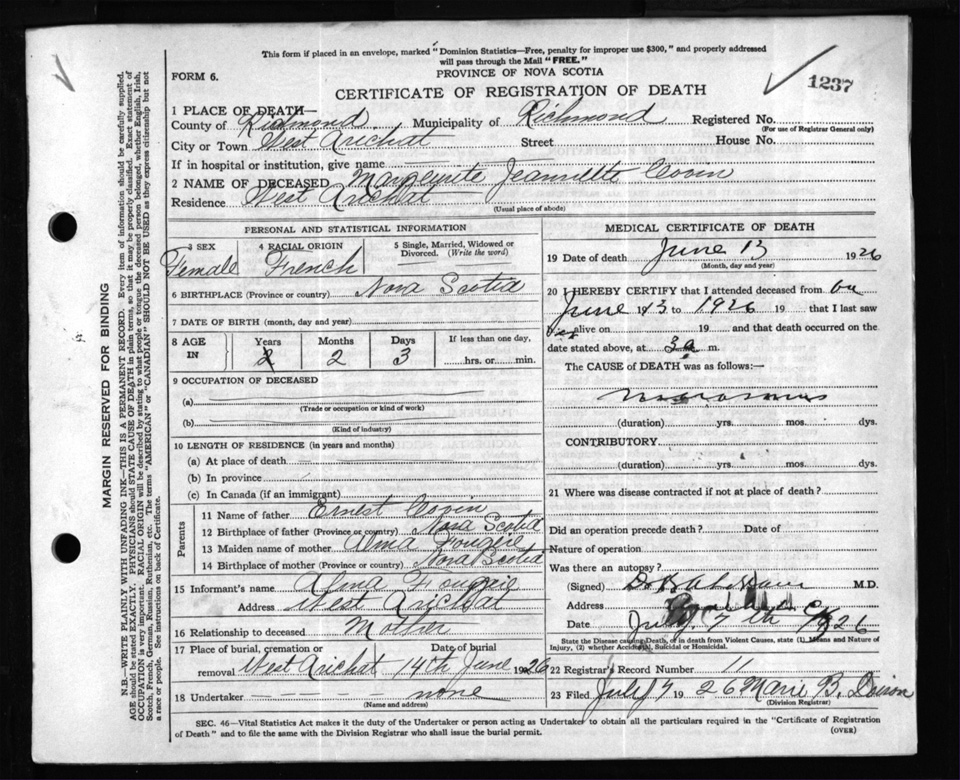 This form if placed in an envelope, marked "Dominion Statistics—Free, penalty for improper use $300," and properly addressed
will pass through the Mail "FREE."
PROVINCE OF NOVA SCOTIA
FORM 6.
1237
CERTIFICATE OF REGISTRATION OF DEATH
1 PLACE OF DEATH—
County of Richmond Municipality of Richmond Registered No.
(For use of Registrar General only)
City or Town West Arichat Street House No.
If in hospital or institution, give name
2 NAME OF DECEASED Marguerite Jeannette
Residence West Arichat
(Usual place of abode)
PERSONAL AND STATISTICAL INFORMATION
3 SEX 4 RACIAL ORIGIN 5 Single, Married, Widowed or Divorced. (Write the word)
Female French
6 BIRTHPLACE (Province or country) Nova Scotia
7 DATE OF BIRTH (month, day and year)
8 AGE IN Years Months Days If less than one day,
2 2 3 hrs. or min.
9 OCCUPATION OF DECEASED
(a)
(Trade or occupation or kind of work)
(b)
(Kind of industry)
10 LENGTH OF RESIDENCE (in years and months)
(a) At place of death
(b) In province
(c) In Canada (if an immigrant)
Parents
11 Name of father Ernest
12 Birthplace of father (Province or country) Nova Scotia
13 Maiden name of mother Alma Fougere
14 Birthplace of mother (Province or country) Nova Scotia
15 Informant's name Alma Fougere
Address West Arichat
16 Relationship to deceased Mother
17 Place of burial, cremation or removal Date of burial
West Arichat 14th June 1926
18 Undertaker none
(Name and address)
MEDICAL CERTIFICATE OF DEATH
19 Date of death June 13 1926
(Month, day and year)
20 I HEREBY CERTIFY that I attended deceased from on
June 13 to 1926 19 that I last saw
alive on 19 and that death occurred on
date stated above, at 3 a m.
The CAUSE of DEATH was as follows:—
Marasmus
(duration) yrs. mos. dys.
CONTRIBUTORY
(duration) yrs. mos. dys.
21 Where was disease contracted if not at place of death?
Did an operation precede death? Date of
Nature of operation
Was there an autopsy?
(Signed) M.D.
Address
Date July 7th 1926
State the Disease causing Death, or in death from Violent Causes, state (1) Means and Nature of
Injury, (2) whether Accidental, Suicidal or Homicidal.
22 Registrar's Record Number 11
23 Filed July 7 1926 Marie B.
(Division Registrar)
SEC. 46—Vital Statistics Act makes it the duty of the Undertaker or person acting as Undertaker to obtain all the particulars required in the "Certificate of Registration
of Death" and to file the same with the Division Registrar who shall issue the burial permit. (OVER)
MARGIN RESERVED FOR BINDING
N.B.—WRITE PLAINLY WITH UNFADING INK—THIS IS A PERMANENT RECORD. Every item of information should be carefully supplied.
AGE should be stated EXACTLY. PHYSICIANS should STATE CAUSE OF DEATH in plain terms, so that it may be properly classified. Exact statement of
OCCUPATION is very important. RACIAL ORIGIN will be described by stating to what people or tongue the deceased person belonged, whether English, Irish,
Scotch, French, German, Russian, Ruthenian, etc. The terms "AMERICAN" or "CANADIAN" SHOULD NOT BE USED as they express citizenship but not
a race or people. See instructions on back of Certificate.